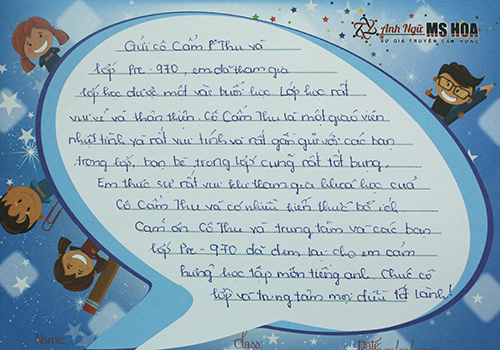 Anh Ngữ MS HOA
SỨ GIẢ TRUYỀN CẢM HỨNG
Gửi cô Cẩm Thu và
lớp Pre - 970, em đã tham gia
lớp học được một vài buổi học lớp học rất
vui vẻ và thân thiện. Cô Cẩm Thu là một giáo viên
nhiệt tình và rất vui tính và rất gần gũi với các bạn
trong lớp, bạn bè trong lớp cũng rất tốt bụng.
Em thực sự rất vui khi tham gia khoá học của
Cô Cẩm Thu và có nhiều kiến thức bổ ích
Cảm ơn Cô Thu và trung tâm và các bạn
lớp Pre - 970 đã đem lại cho em cảm
hứng học tập môn tiếng anh. Chúc cô
lớp và trung tâm mọi điều tốt lành!
Name:
Class:
Date: .../.../...